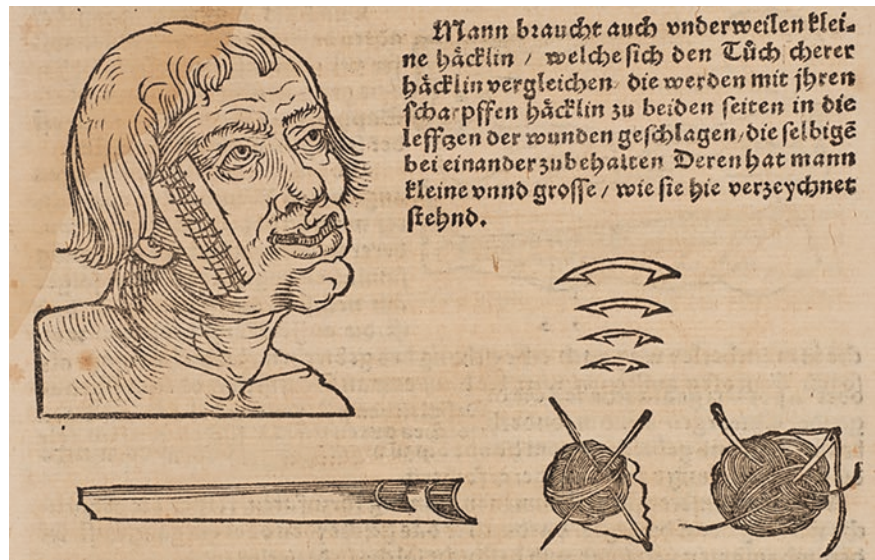 Mann braucht auch vnderweilen klei⸗
ne häcklin / welche sich den Tůch cherer
häcklin vergleichen die werden mit jhren
scharpffen häcklin zu beiden seiten in die
leffzen der wunden geschlagen, die selbigē
bei einander zubehalten Deren hat mann
kleine vnnd grosse / wie sie hie verzeychnet
stehnd.